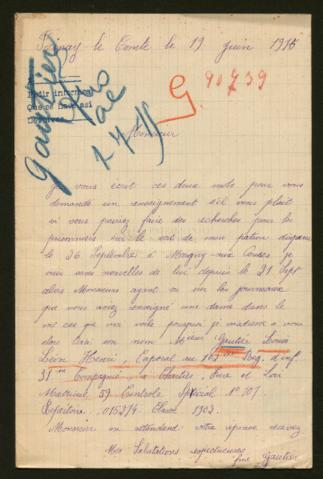 Epinay le Comte le 19 Juin 1915
G. 90739
Gautier
Pedir informes
Que se have asi
Devolver
1-7-15
Monsieur
Je vous écrit ces deux mots pour vous
demandé un renseignement s'il vous plait
si vous pouriez faire des recherches pour les
prisonniers sur le cas de mon patron disparu
le 26 Septembre à Maigny aux Causes je
suis sans nouvelles de lui depuis le 21 Sept
alors Monsieur ayant vu sur les journaux
que vous aviez enseigné une dame dans le
cas que moi voila pourquoi je m'adresse a vous
donc voici son nom Monsieur Gautier Louis
Léon Henri, Caporal au 102 eme Reg. d'inf
31 me Compagnie à Chartres, Eure et Loir
Matricule, 59 Controle Spécial N° 107
Répertoire, 015274 Classe 1903.
Monsieur en attendant votre réponse recevez
Mes Salutations respectueuses
Gautier